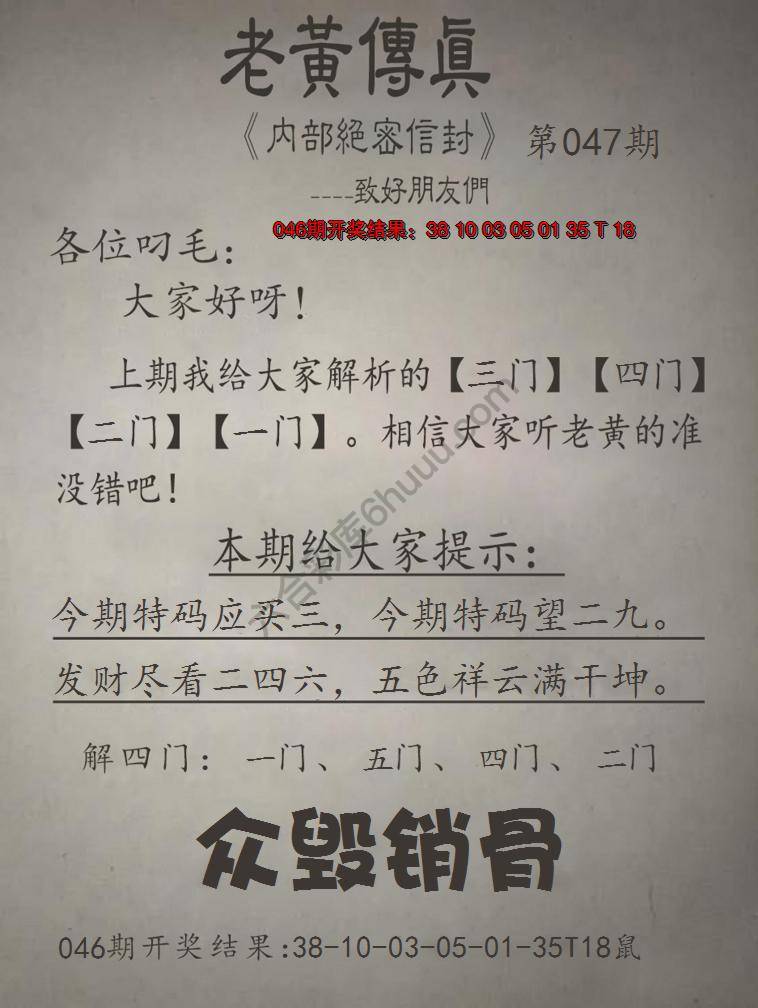 老黃傳真
《内部絕密信封》 第047期
----致好朋友們
046期开奖结果：38 10 03 05 01 35 T 18
各位叼毛：
大家好呀！
上期我给大家解析的【三门】【四门】
【二门】【一门】。相信大家听老黄的准
没错吧！
六合彩库6huuu.com
本期给大家提示：
今期特码应买三，今期特码望二九。
发财尽看二四六，五色祥云满干坤。
解四门： 一门、 五门、 四门、 二门
众毁销骨
046期开奖结果:38-10-03-05-01-35T18鼠